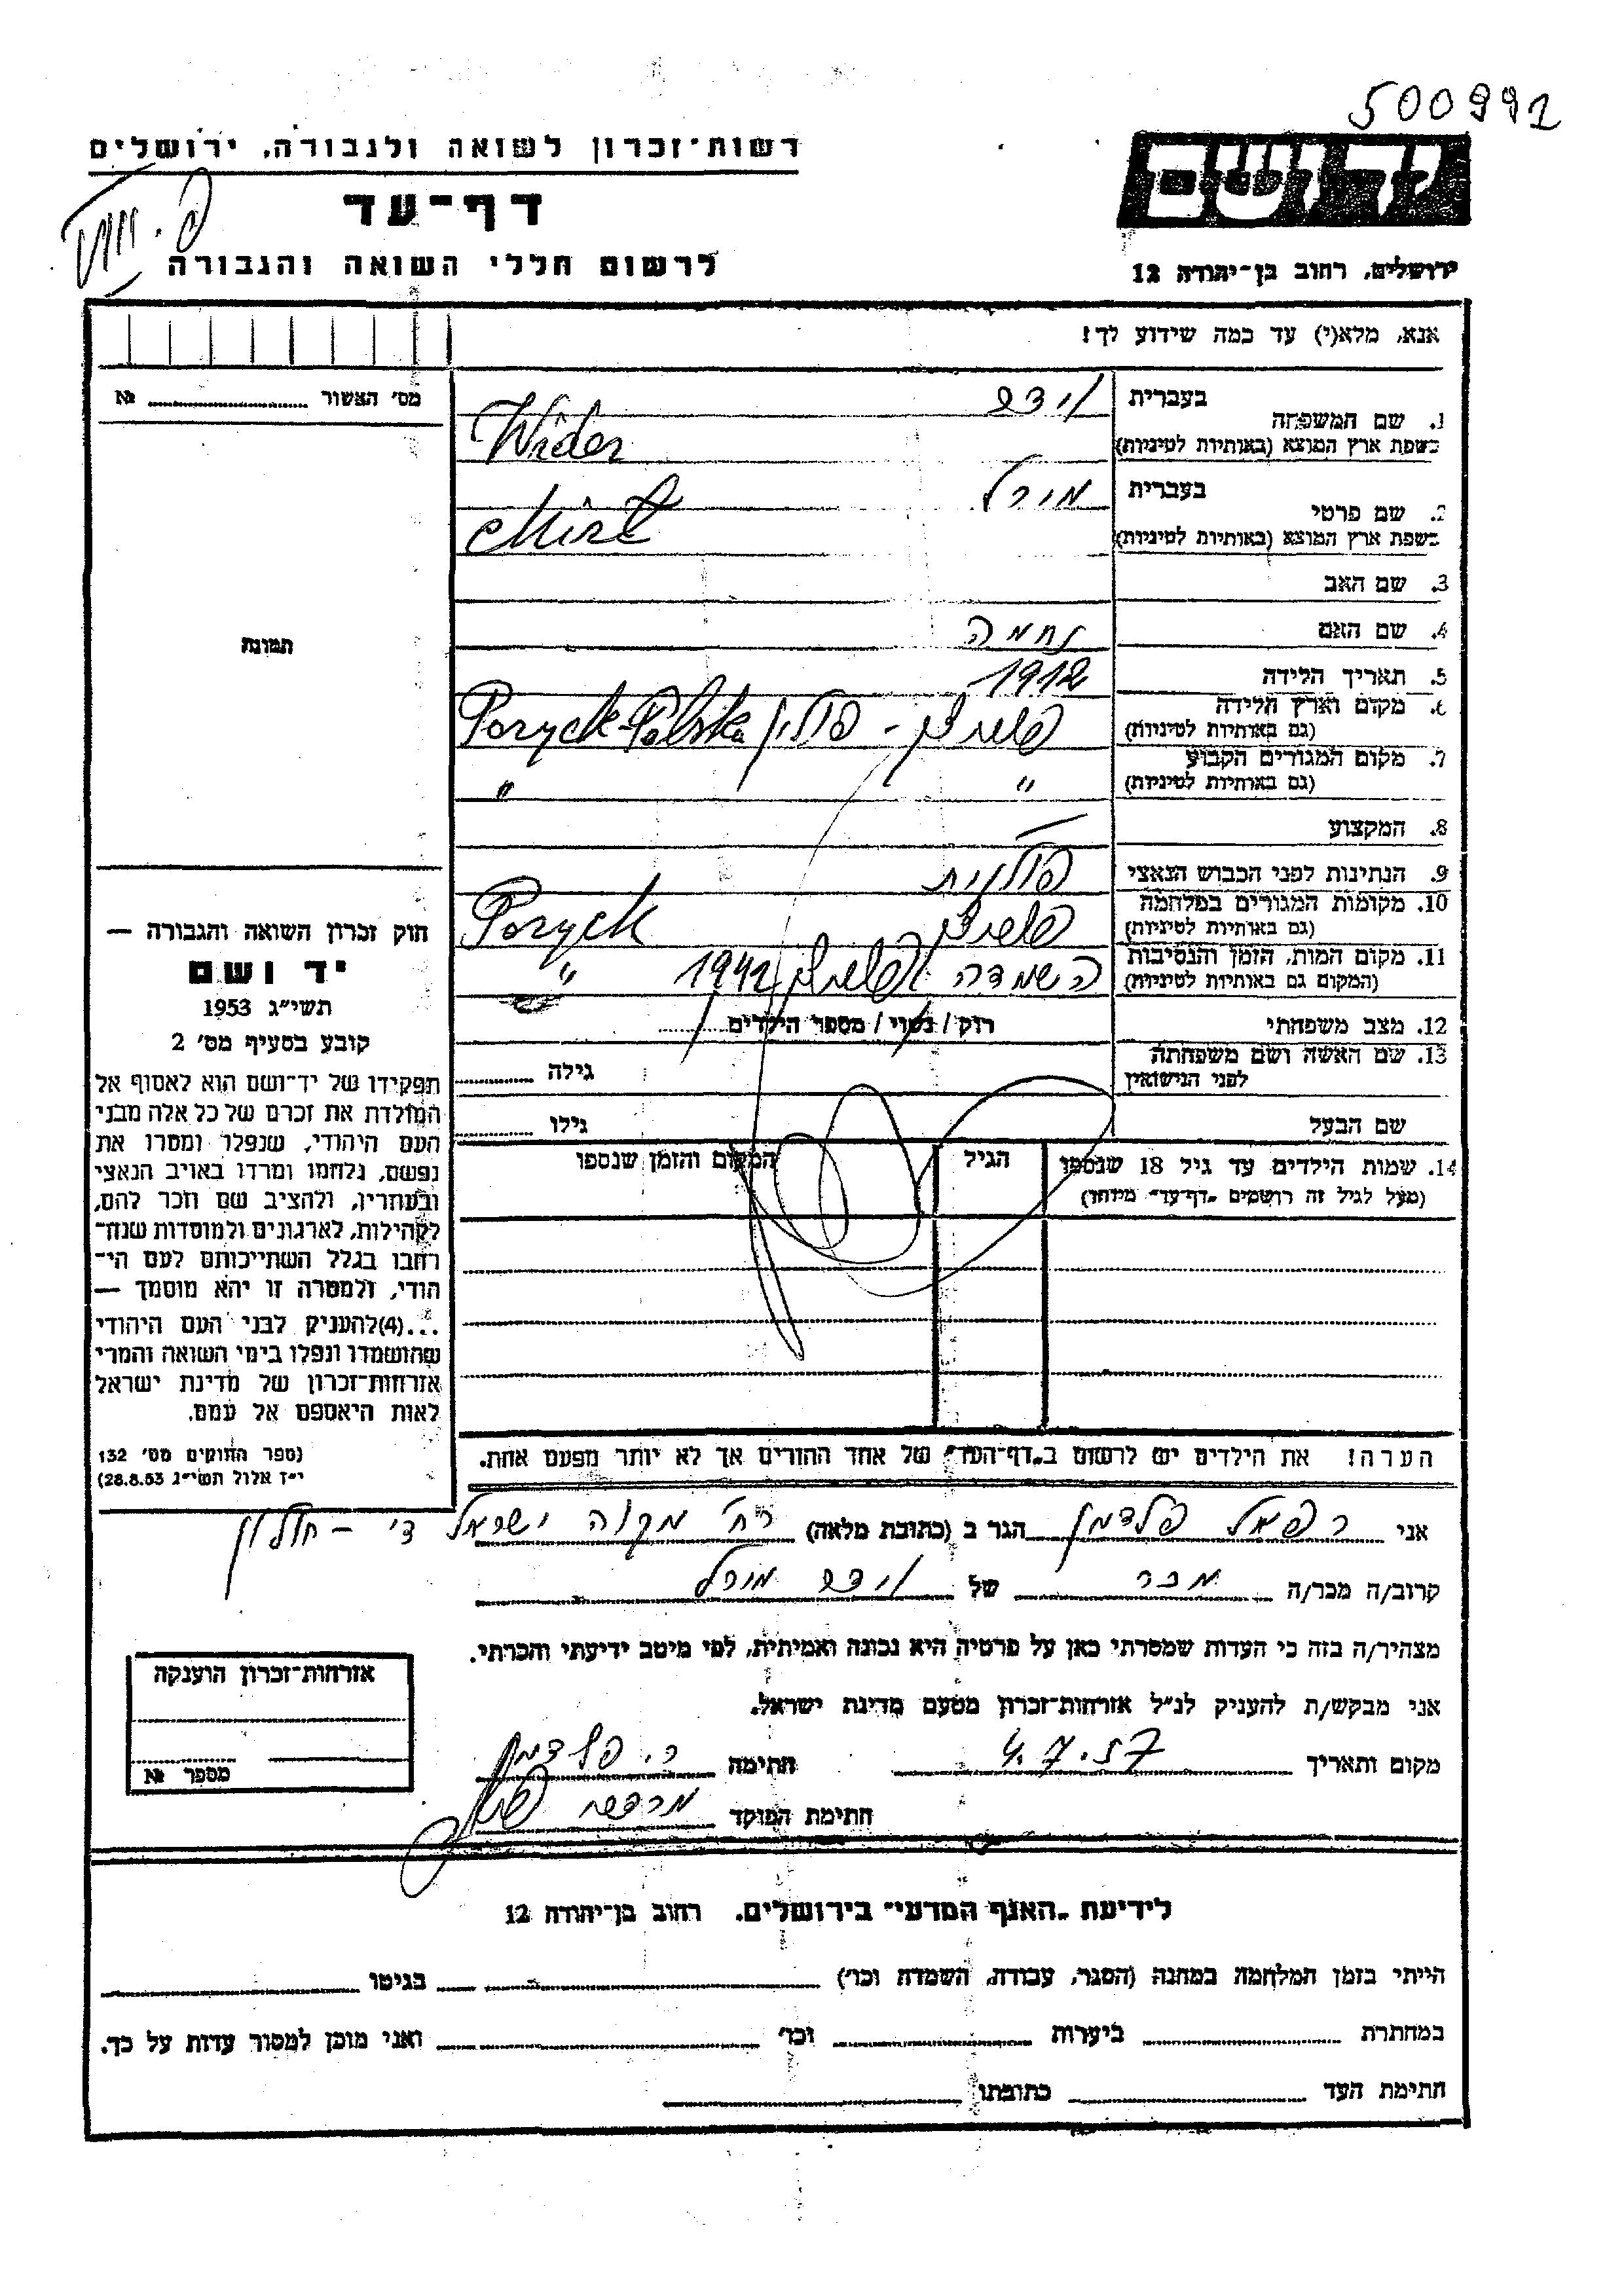 500992
רשות-זכרון לשואה ולגבורה, ירושלים
יד ושם
דף-עד
לרשום חללי השואה והגבורה
ירושלים, רחוב בן-יהודה 12
אנא, מלא(י) עד כמה שידוע לך!
מס׳ האשור № 
תמונה
1. שם המשפחה
בעברית
בשפת ארץ המוצא (באותיות לטיניות)
Wider
2. שם פרטי
בעברית מירל
בשפת ארץ המוצא (באותיות לטיניות)
Mirl
3. שם האב
4. שם האם נחמה
5. תאריך הלידה 1912
6. מקום וארץ הלידה
(גם באותיות לטיניות)
פולין Poryck-Polska
7. מקום המגורים הקבוע
(גם באותיות לטיניות)
" "
8. המקצוע —
9. הנתינות לפני הכבוש הנאצי פולנית
10. מקומות המגורים במלחמה
(גם באותיות לטיניות)
Poryck
11. מקום המות, הזמן והנסיבות
(המקום גם באותיות לטיניות)
השמדה 1942 "
12. מצב משפחתי רוק / נשוי / מספר הילדים
13. שם האשה ושם משפחתה
לפני הנישואין
גילה
שם הבעל גילו
14. שמות הילדים עד גיל 18 שנספו
(מעל לגיל זה רושמים "דף-עד" מיוחד)
הגיל
המקום והזמן שנספו
חוק זכרון השואה והגבורה —
יד ושם
תשי"ג 1953
קובע בסעיף מס׳ 2
תפקידו של יד-ושם הוא לאסוף אל
המולדת את זכרם של כל אלה מבני
העם היהודי, שנפלו ומסרו את
נפשם, נלחמו ומרדו באויב הנאצי
ובעוזריו, ולהציב שם וזכר להם,
לקהילות, לארגונים ולמוסדות שנח-
רבו בגלל השתייכותם לעם הי-
הודי, ולמטרה זו יהא מוסמך —
...(4)להעניק לבני העם היהודי
שהושמדו ונפלו בימי השואה והמרי
אזרחות-זכרון של מדינת ישראל
לאות היאספם אל עמם.
(ספר החוקים מס׳ 132
י"ז אלול תשי"ג 28.8.53)
הערה! את הילדים יש לרשום ב"דף-העד" של אחד ההורים אך לא יותר מפעם אחת.
אני רפאל פלדמן הגר ב (כתובת מלאה) רח׳ מקוה ישראל - חולון
קרוב/ה מכר/ה מכר של מירל
מצהיר/ה בזה כי העדות שמסרתי כאן על פרטיה היא נכונה ואמיתית, לפי מיטב ידיעתי והכרתי.
אני מבקש/ת להעניק לנ"ל אזרחות-זכרון מטעם מדינת ישראל.
מקום ותאריך 4.7.57 חתימה ר. פלדמן
חתימת הפוקד
אזרחות-זכרון הוענקה
מספר №
לידיעת "האגף המדעי" בירושלים, רחוב בן-יהודה 12
הייתי בזמן המלחמה במחנה (הסגר, עבודה, השמדה וכו׳) בגיטו
במחתרת ביערות וכו׳ ואני מוכן למסור עדות על כך.
חתימת העד כתובתו